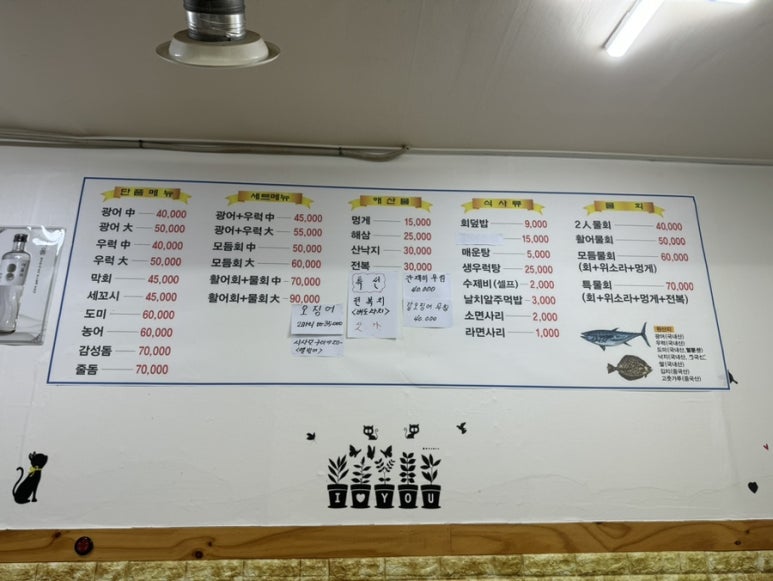 단품메뉴
광어 中 40,000
광어 大 50,000
우럭 中 40,000
우럭 大 50,000
막회 45,000
세꼬시 45,000
도미 60,000
농어 60,000
감성돔 70,000
줄돔 70,000
세트메뉴
광어+우럭 中 45,000
광어+우럭 大 55,000
모듬회 中 50,000
모듬회 大 60,000
활어회+물회 中 70,000
활어회+물회 大 90,000
오징어
해산물
멍게 15,000
해삼 25,000
산낙지 30,000
전복 30,000
특선
전복치
간재미무침
40,000
갑오징어무침
40,000
식사류
회덮밥 9,000
15,000
매운탕 5,000
생우럭탕 25,000
수제비(셀프) 2,000
날치알주먹밥 3,000
소면사리 2,000
라면사리 1,000
물회
2人물회 40,000
활어물회 50,000
모듬물회 60,000
(회+위소라+멍게)
특물회 70,000
(회+위소라+멍게+전복)
원산지
광어(국내산)
우럭(국내산)
쌀(국내산)
김치(중국산)
고춧가루(중국산)
I YOU